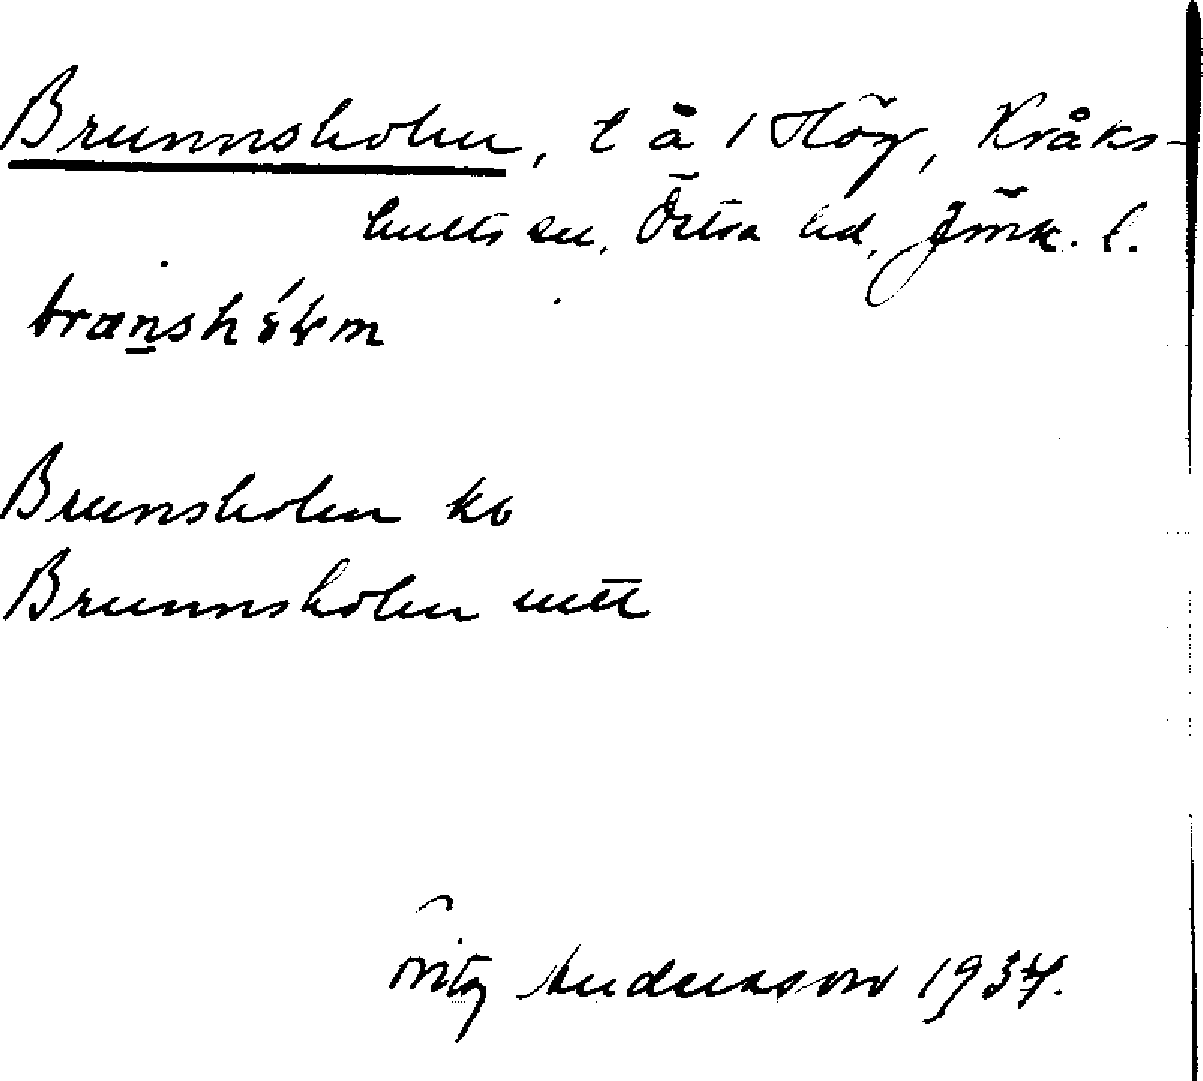 Brunnsholm, t å 1 Hög, Kråks-
hults sn, Östra hd, Jönk. l.
Brunsholm kb
Brunnsholm utt
Fritz Andersson 1934.